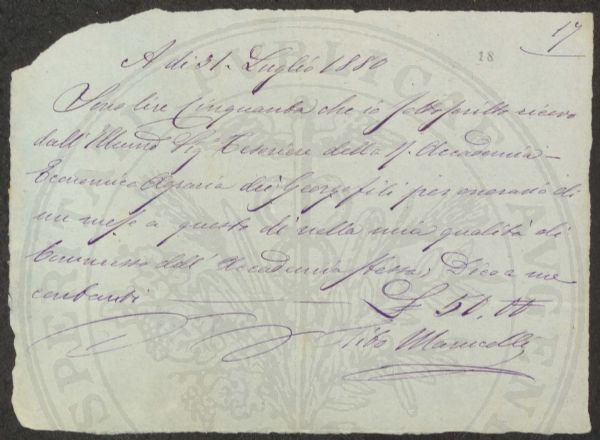 17
18
A di 31. Luglio 1880
Sono lire Cinquanta che io sottoscritto ricevo
dall' Illmo Sig. Tesoriere della R. Accademia
Economico Agraria dei Georgofili per onorario di
un mese a questo dì nella mia qualità di
Commesso dell' Accademia stessa, Dico a me
contanti £ 50.00
Tito